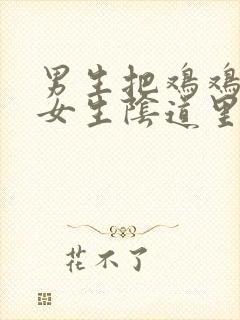 男生把鸡鸡
女生陰道里
花不了